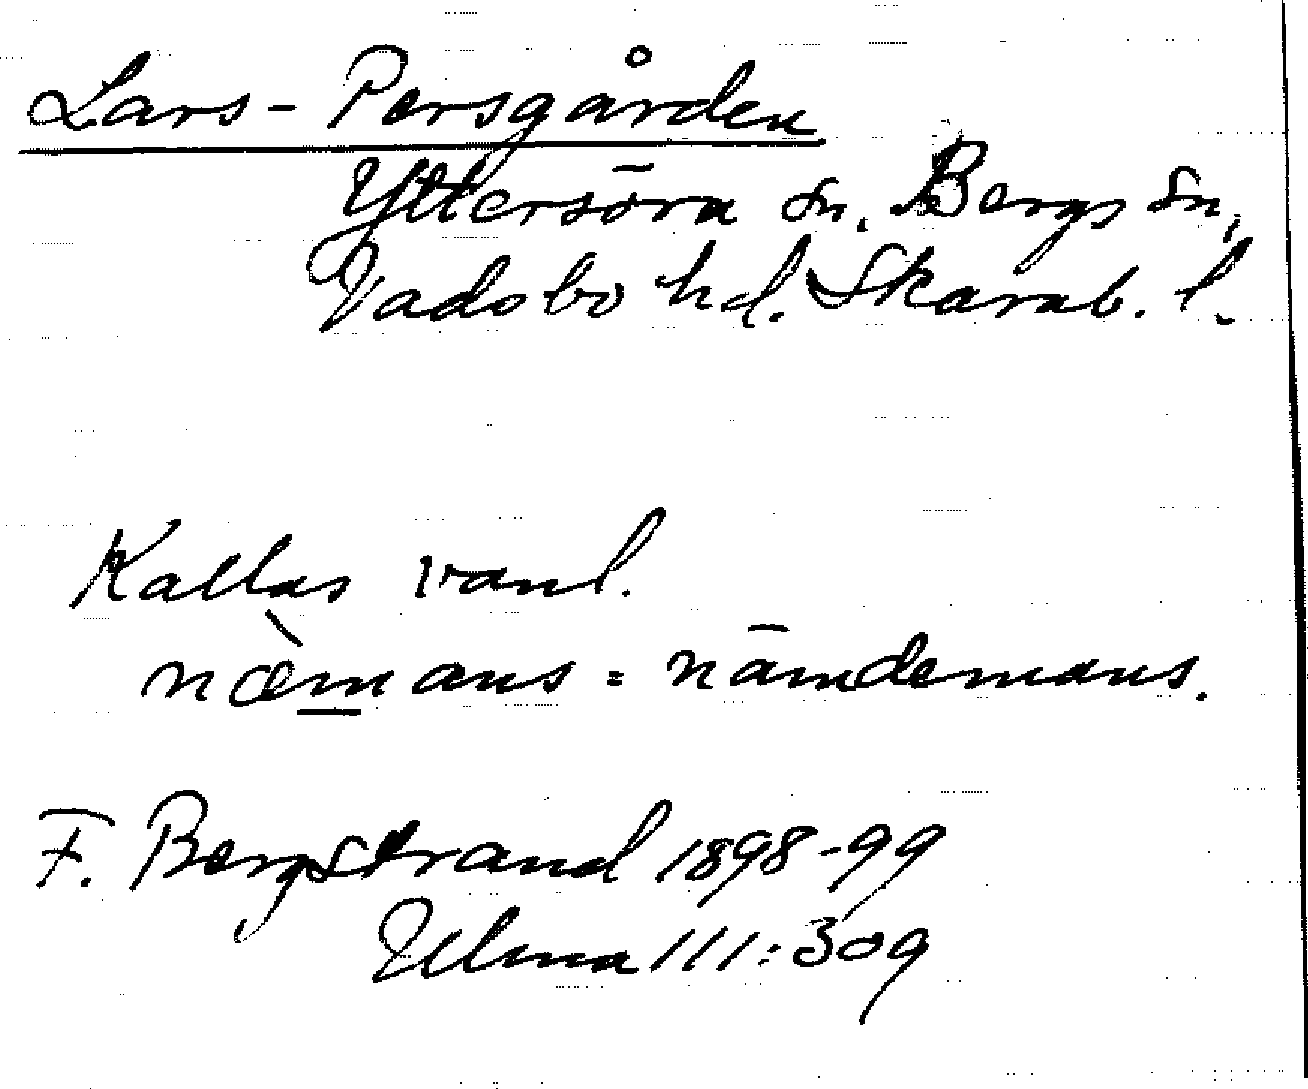 Lars-Persgården
Yttersöra sn. Bergs sn,
Vadsbo hd. Skarab. l.
Kallas vanl.
næ̀mans = nämdemans.
F. Bergstrand 1898-99
Ulma 111:309